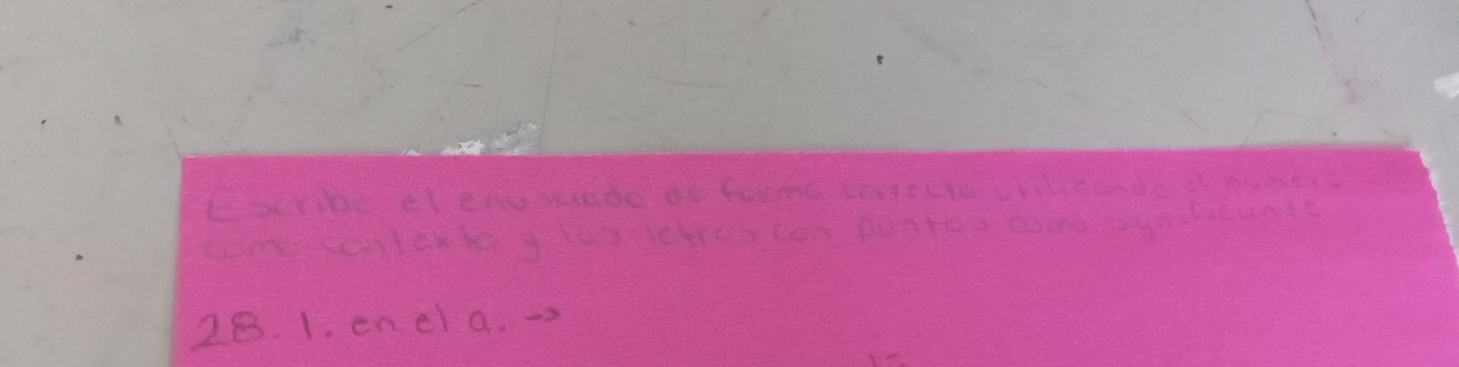 Escribe el enunciado de forma correcta utilicando el numero
como contexto y las letras con puntos como significante
28. l. en el a. ->